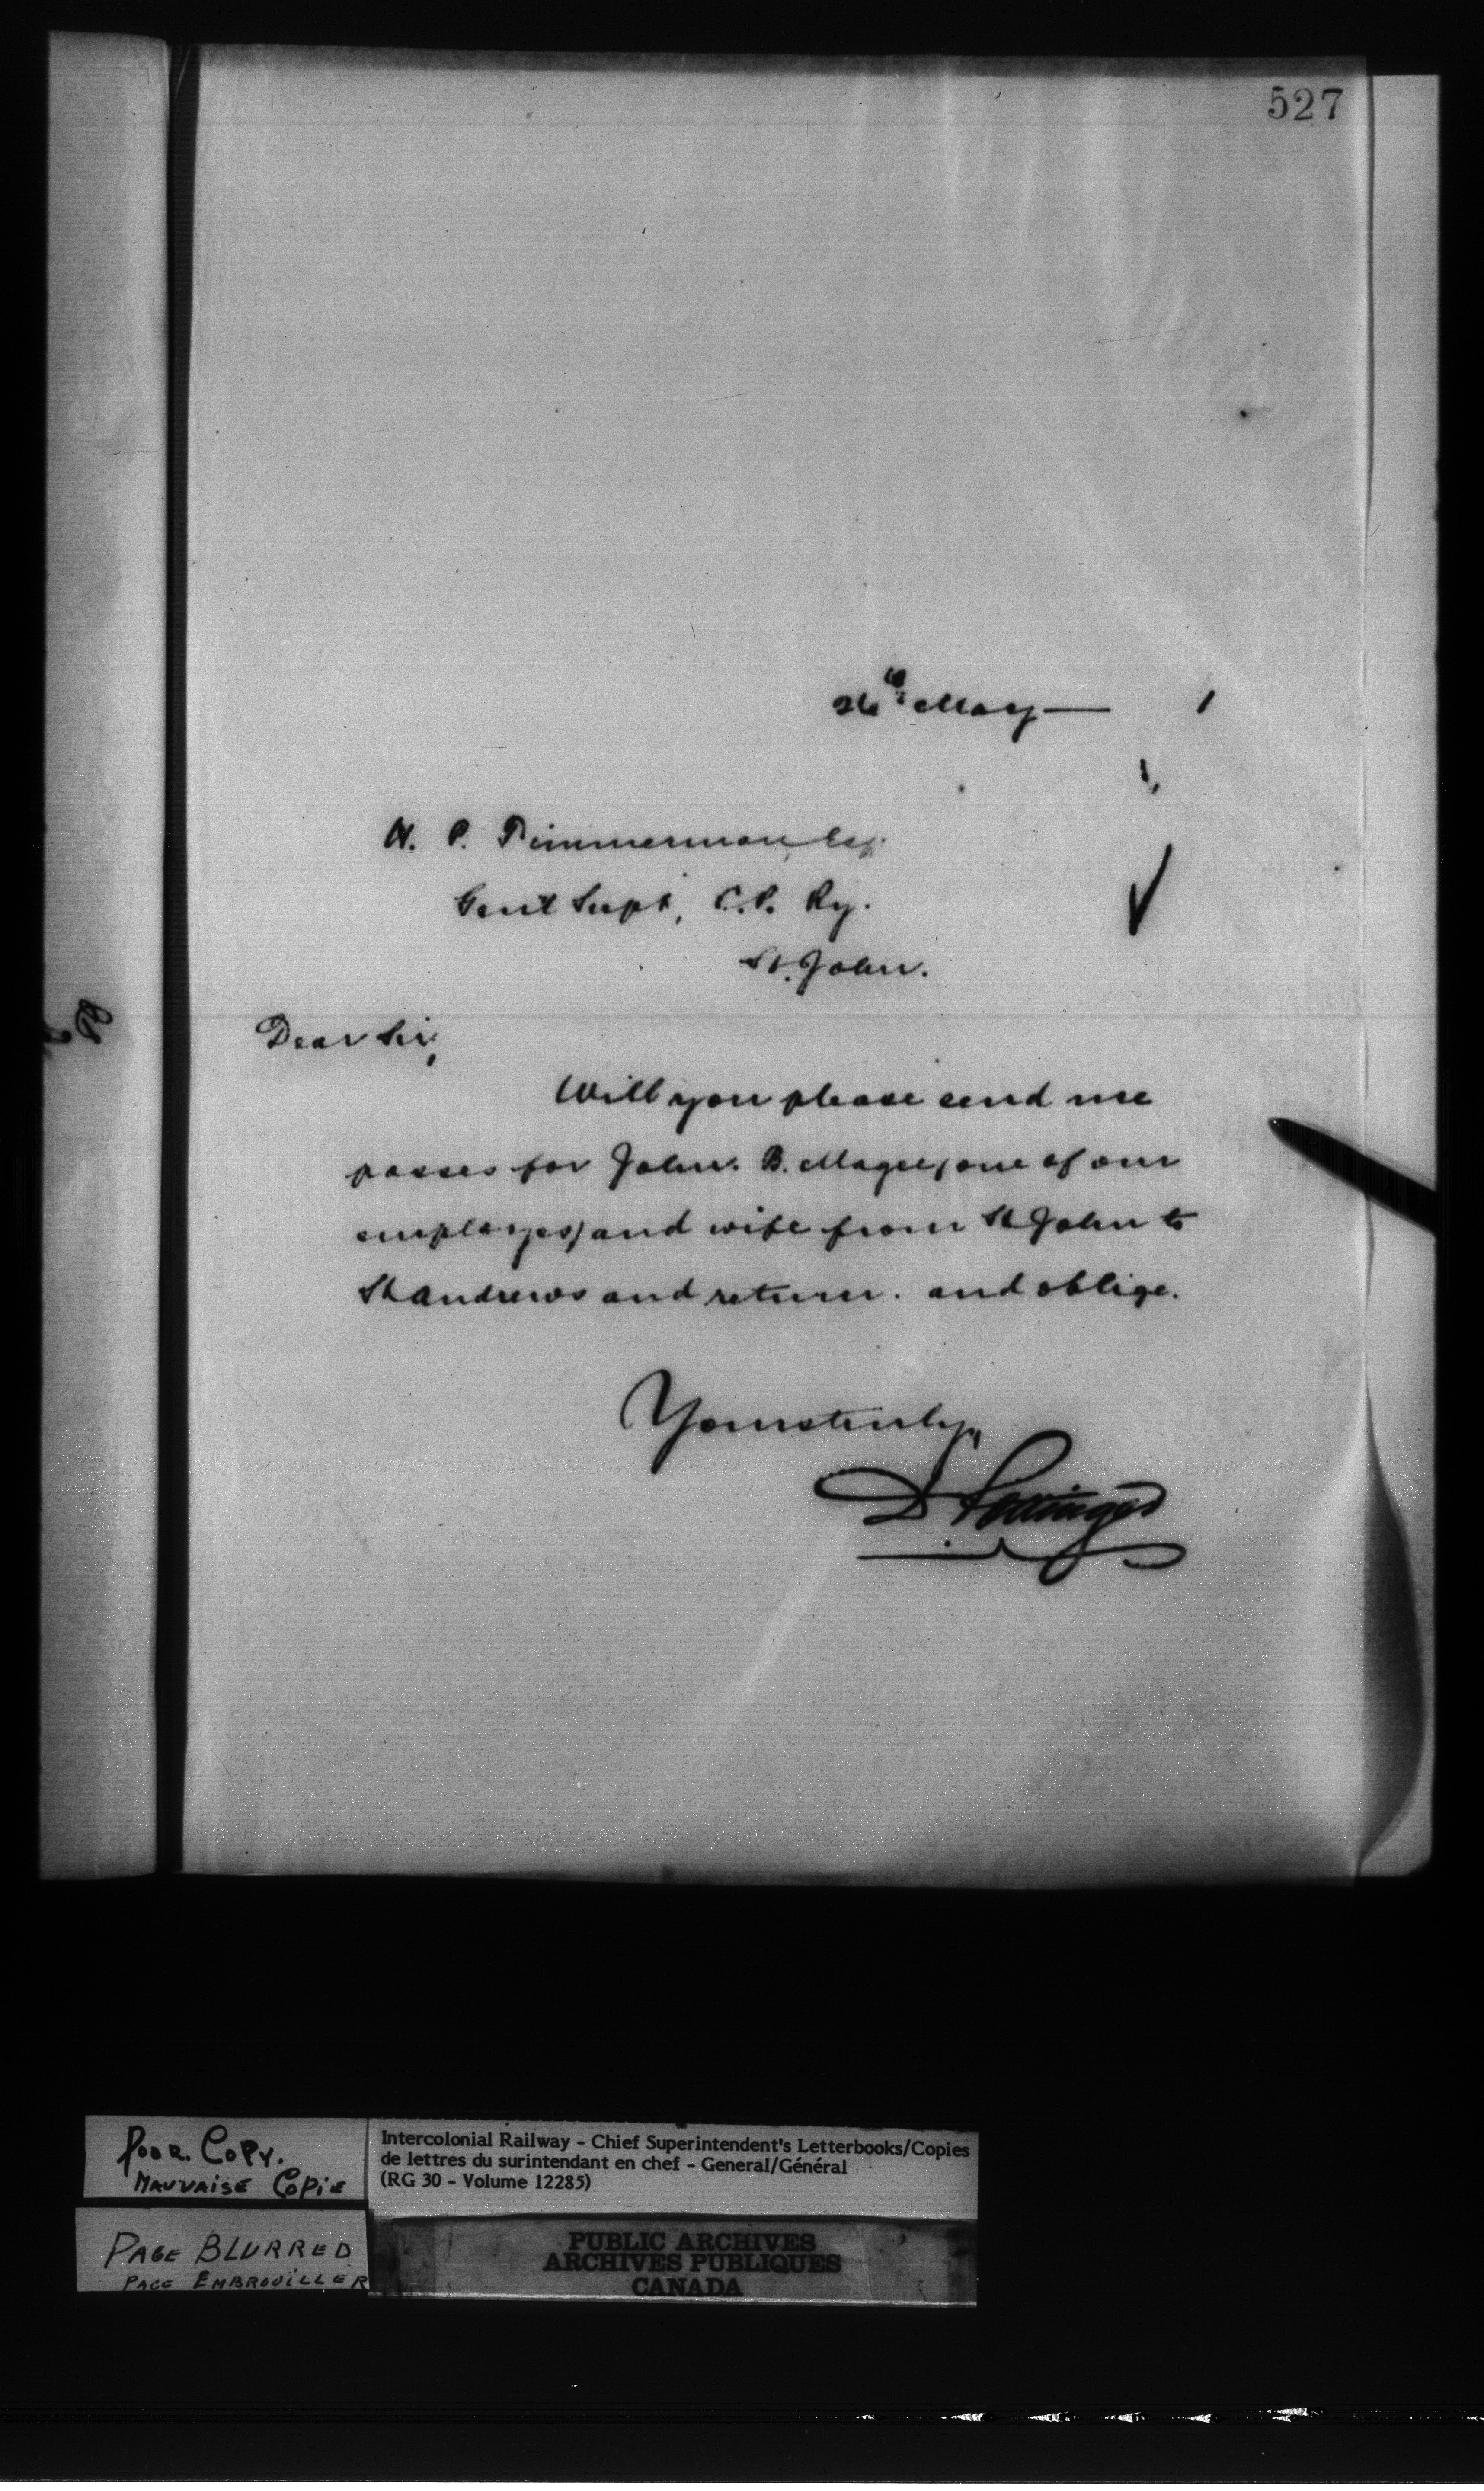 527
26th May — 1
H. P. Timmerman, Esq.
Genl Supt, C.P. Ry.
St. John.
Dear Sir,
Will you please send me
passes for John. B. Magee, one of our
employes, and wife from St John to
St Andrews and return. and oblige.
Yours truly,
D Pottinger
Poor Copy.
Mauvaise Copie
Intercolonial Railway - Chief Superintendent's Letterbooks/Copies
de lettres du surintendant en chef - General/Général
(RG 30 - Volume 12285)
Page Blurred
Page Embrouiller
PUBLIC ARCHIVES
ARCHIVES PUBLIQUES
CANADA